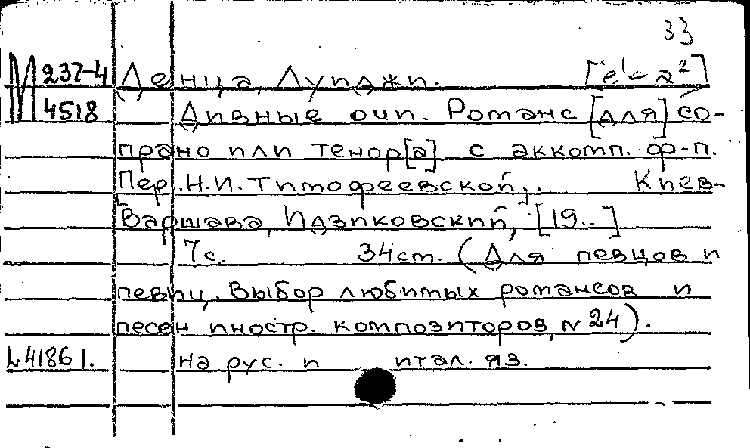 33
М 237-4 Денца, Луиджи. [e¹-a²]
4518 Дивные очи. Романс [для] со-
прано или тенор[а] с аккомп. ф-п.
Пер. Н.И. Тимофеевской. Киев-
Варшава, Идзиковский, [19..]
7с. 34см. (Для певцов и
певиц. Выбор любимых романсов и
песен иностр. композиторов, N 24).
L41861. на рус. и итал. яз.